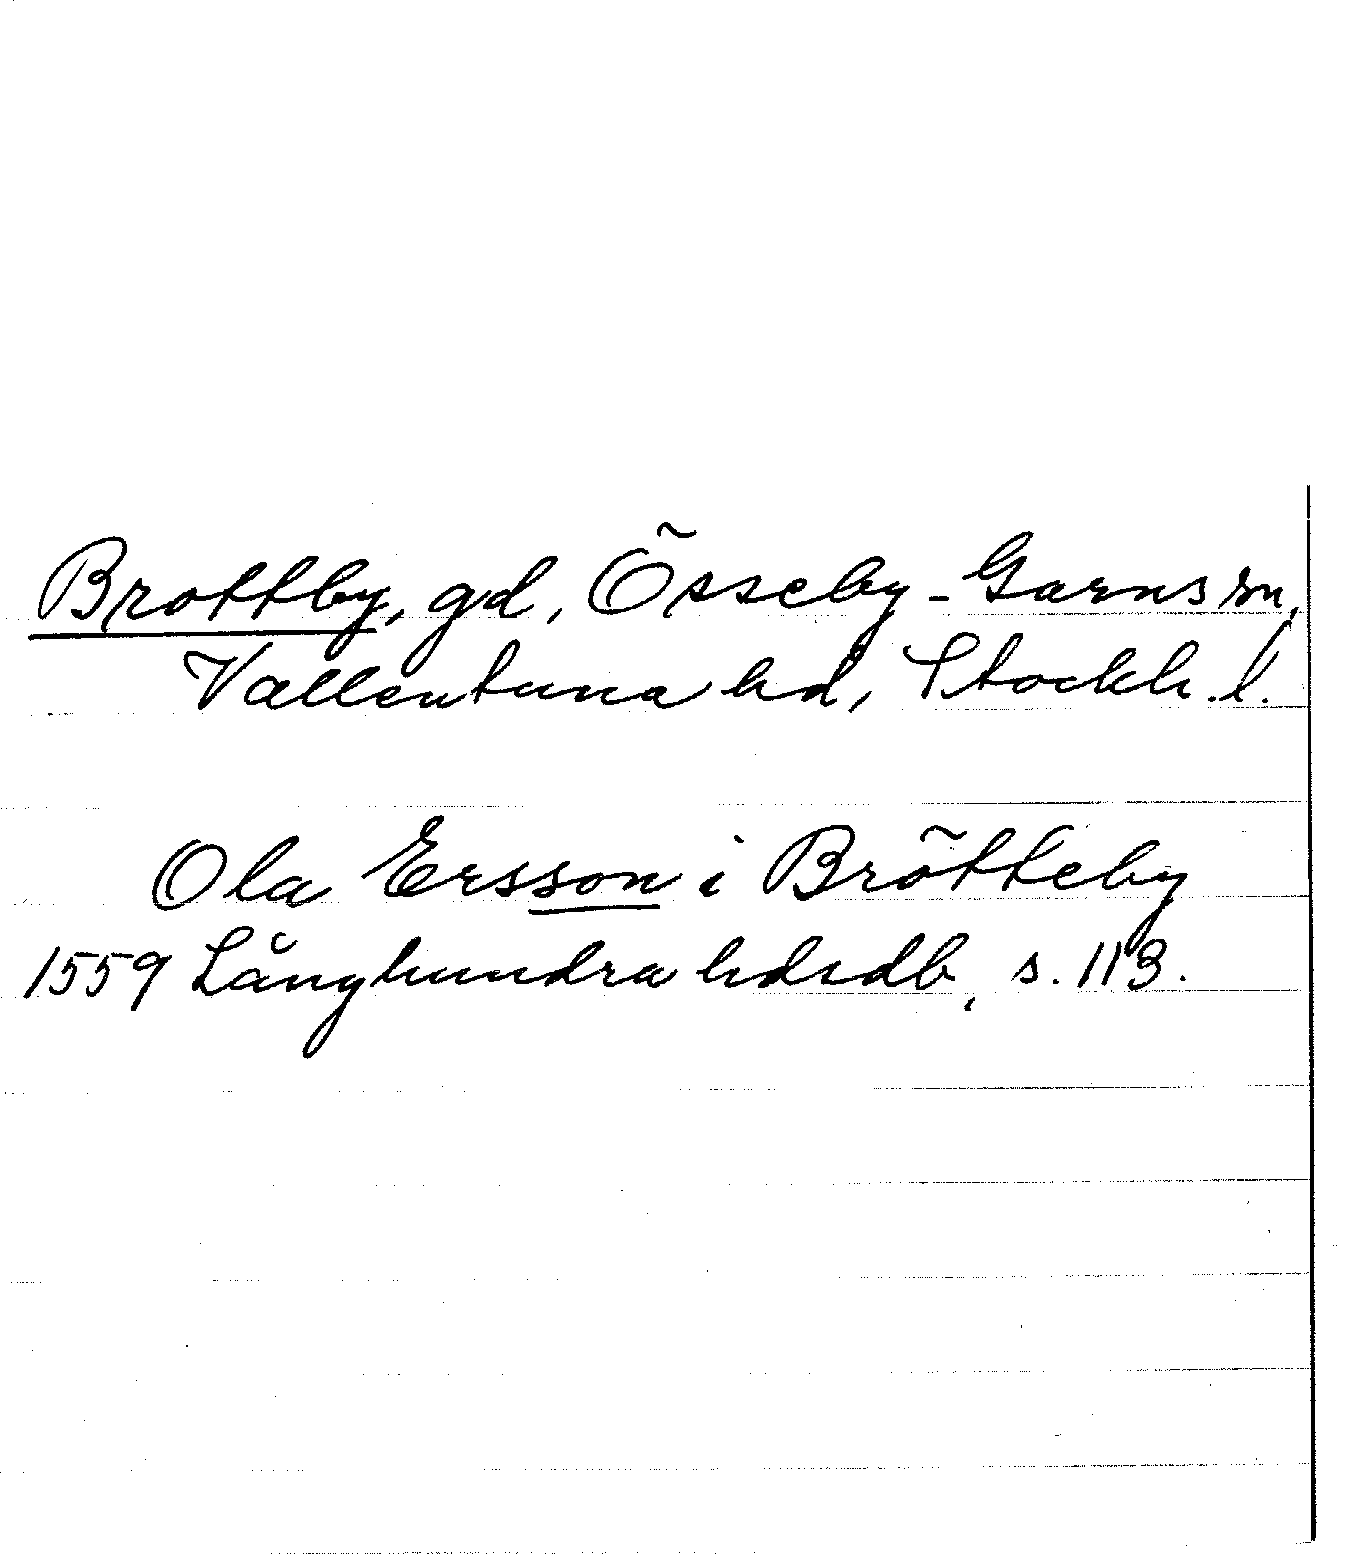 Brottby, gd, Össeby-Garns sn,
Vallentuna hd, Stockh. l.
Ola Ersson i Brötteby
1559 Långhundra hdsdb, s. 113.